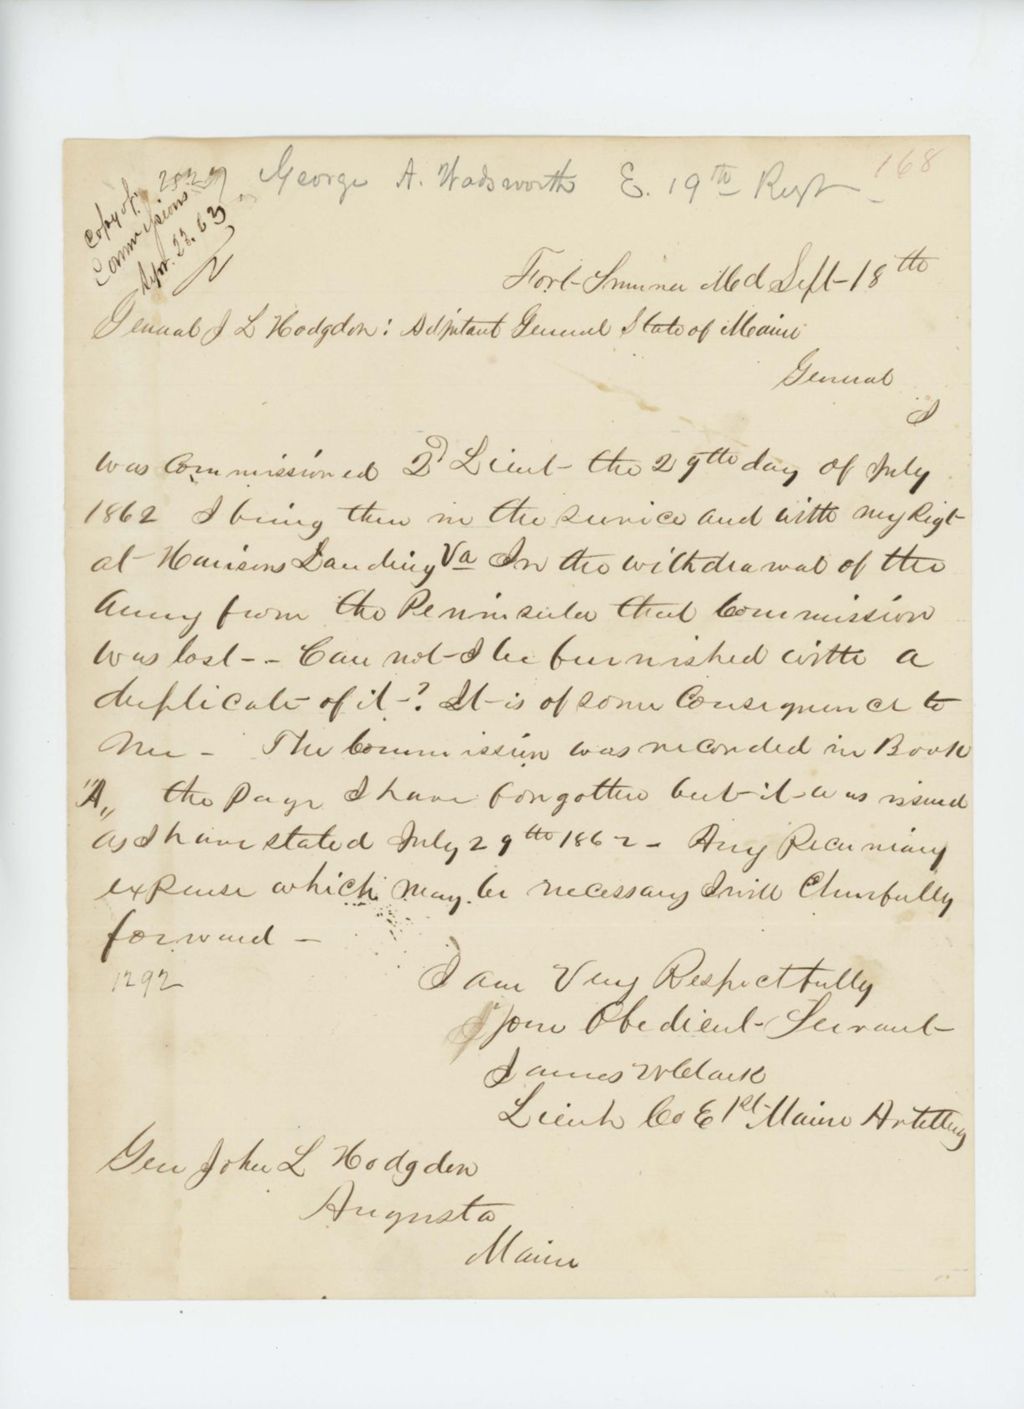 George A. Wadsworth E. 19th Regt
168
Copy of
Commissions
Apr. 23. 63
Fort Sumner Md Sept 18th
General J L Hodgdon: Adjutant General State of Maine
General
I
was Commissioned 2d Lieut - the 29th day of July
1862 I being then in the service and with my Rigt
at Harrisons Landing Va In the withdrawal of the
Army from the Peninsula that Commission
was lost - - Can not I be furnished with a
duplicate of it -? It is of some Consequence to
me - The Commission was recorded in Book
"A,, the page I have forgotten but it was issued
as I have stated July 29th 1862 - Any Pecuniary
expense which may be necessary I will Cheerfully
forward -
1292
I am Very Respectfully
Your Obedient Servant
James W Clark
Lieut Co E 1st Maine Artillery
Gen John L Hodgdon
Augusta
Maine